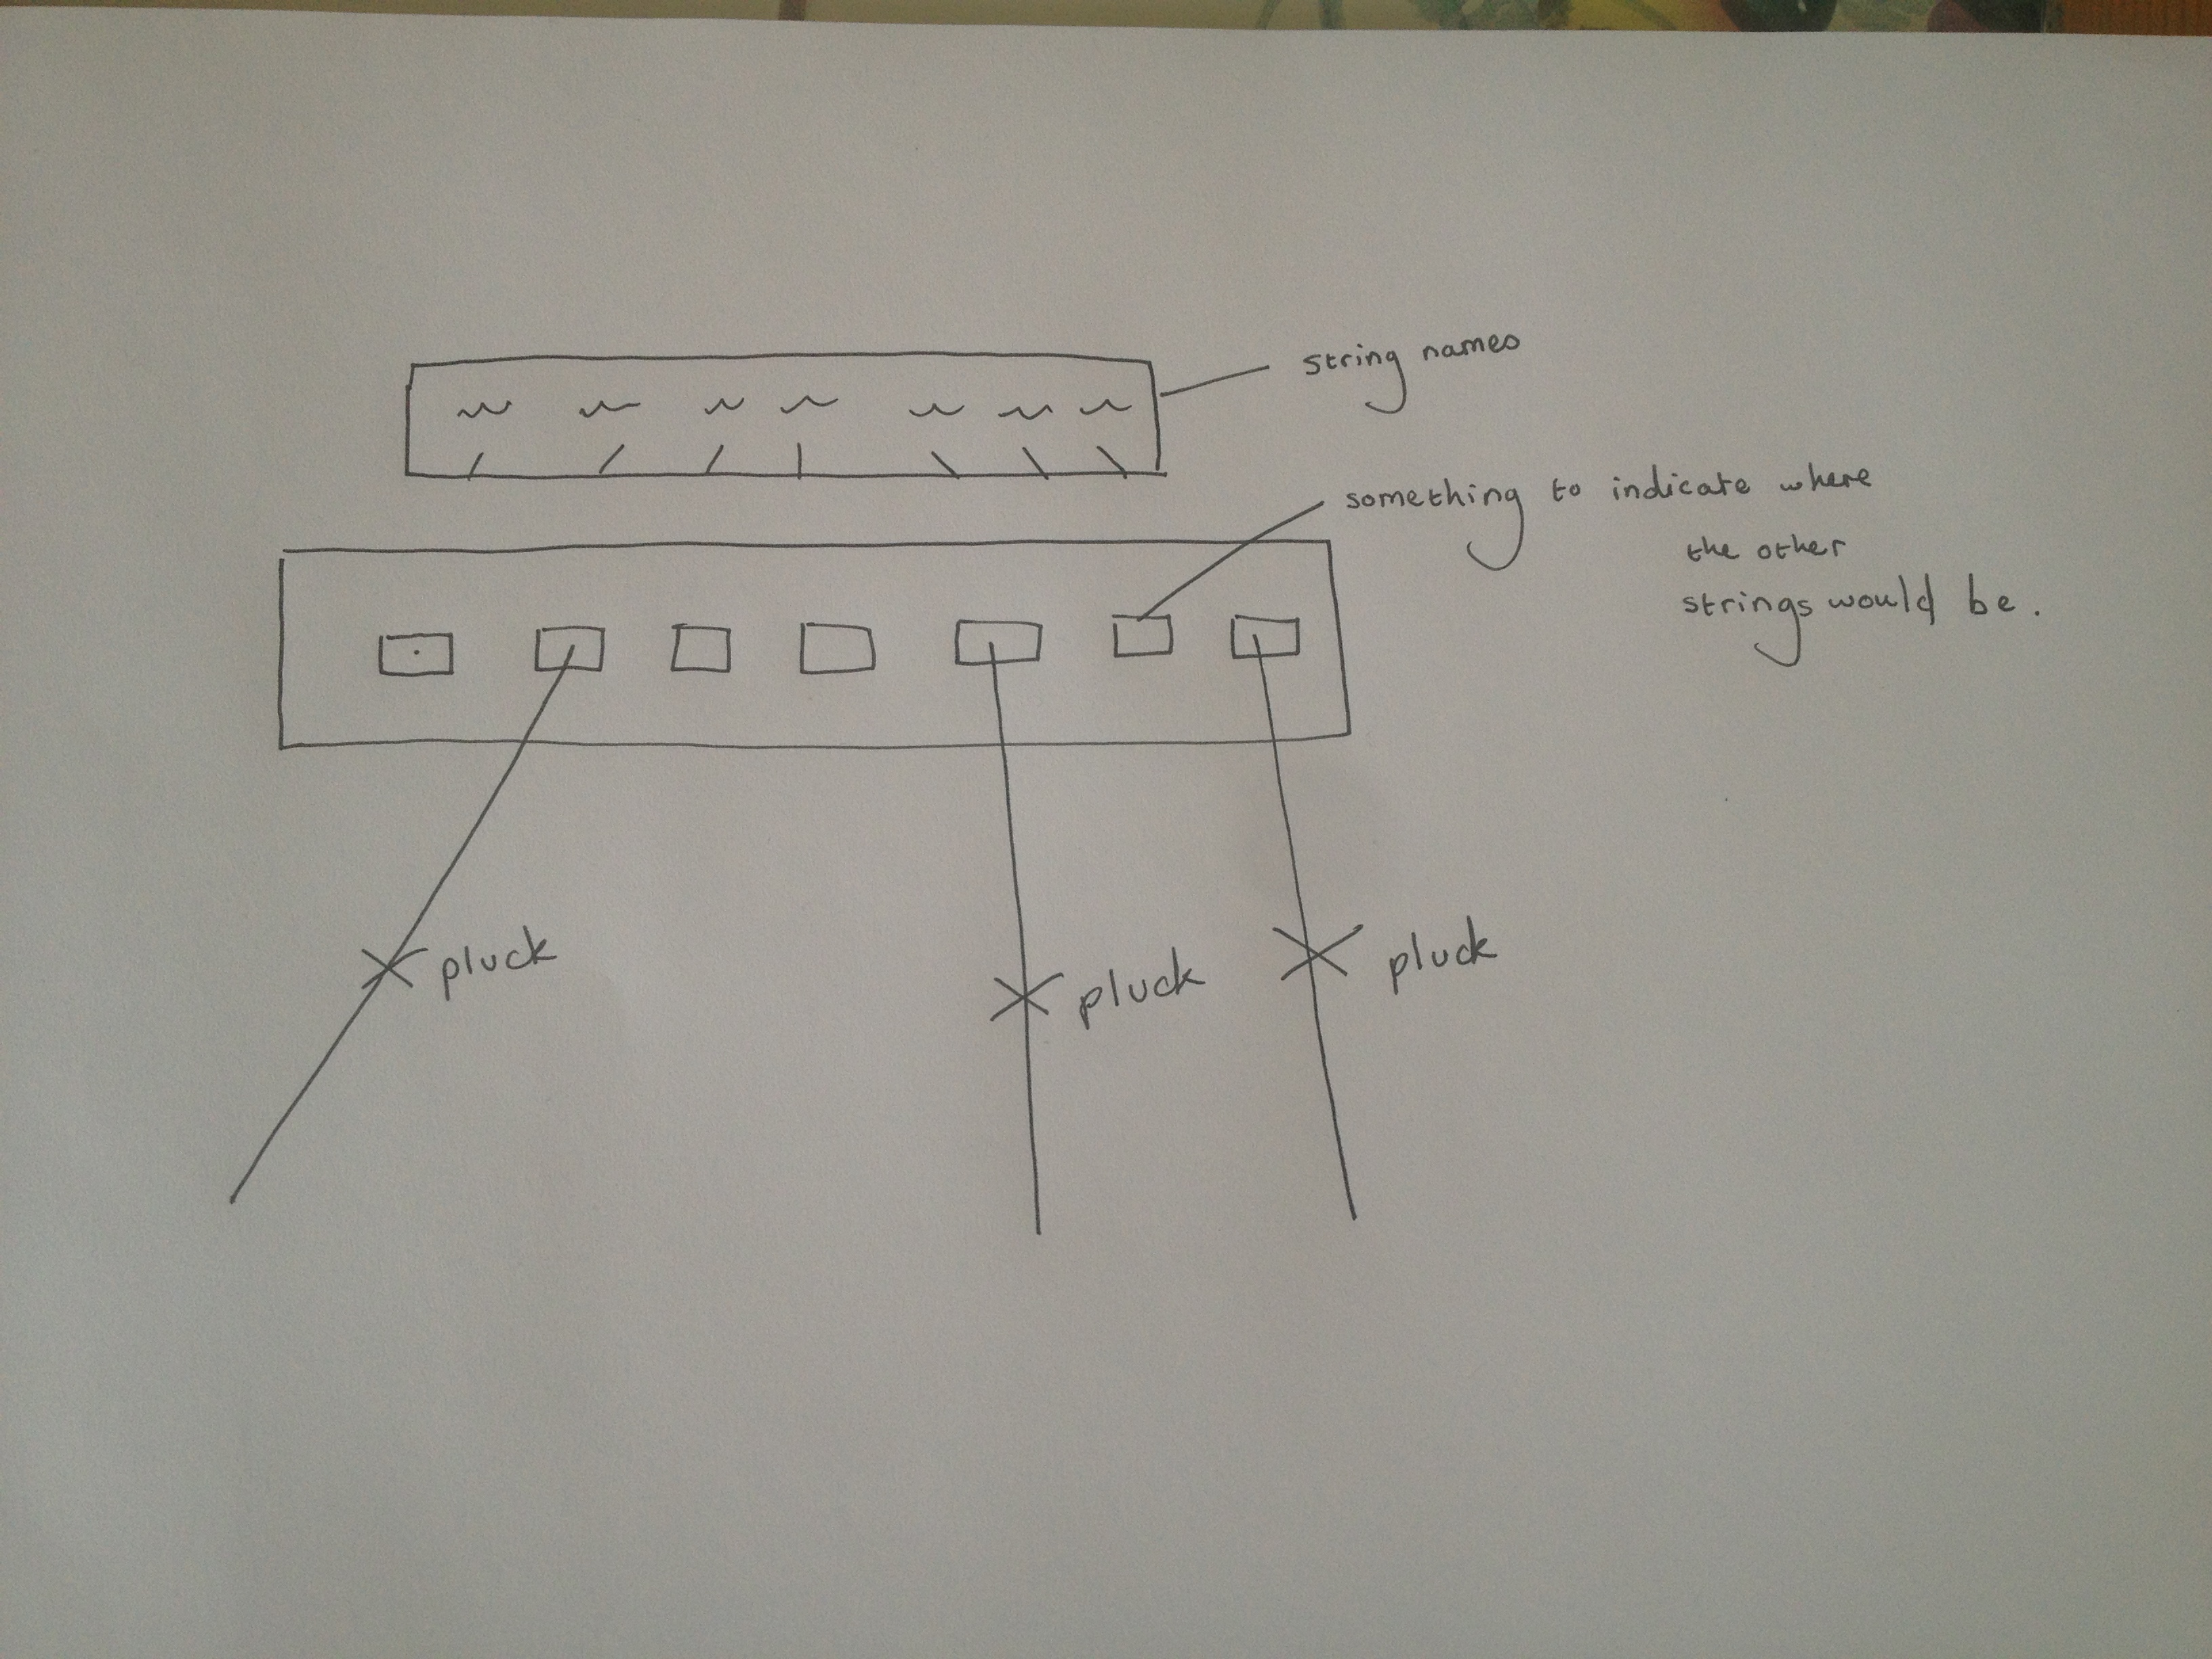 string names
something to indicate where
the other
strings would be.
pluck
pluck
pluck